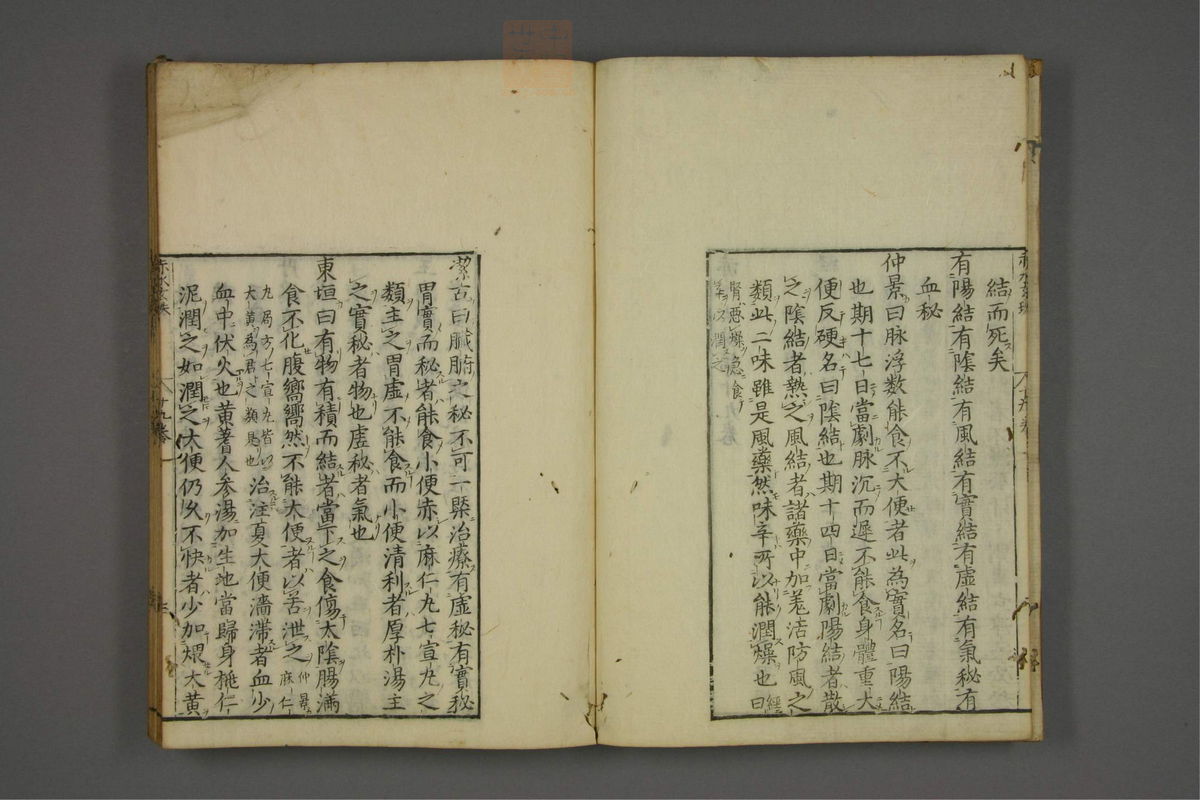 結而死矣
有陽結有陰結有風結有實結有虛結有氣秘有
血秘
仲景曰脉浮数能食不大便者此為實名曰陽結
也期十七日當劇脉沉而遲不能食身體重大
便反硬名曰陰結也期十四日當劇陽結者散
之陰結者熱之風結者諸藥中加羌活防風之
類此二味雖是風藥然味辛所以能潤燥也經曰
腎惡燥急食
辛以潤之
潔古曰臟腑之秘不可一槩治療有虛秘有實秘
胃實而秘者能食小便赤以麻仁丸七宣丸之
類主之胃虛不能食而小便清利者厚朴湯主
之實秘者物也虛秘者氣也
東垣曰有物有積而結者當下之食傷太陰腸滿
食不化腹嚮嚮然不能大便者以苦泄之仲景麻仁
丸局方七宣丸皆以
大黃為君之類是也治注夏大便濇滯者血少
血中伏火也黃蓍人參湯加生地當歸身桃仁
泥潤之如潤之大便仍久不快者少加煨大黃